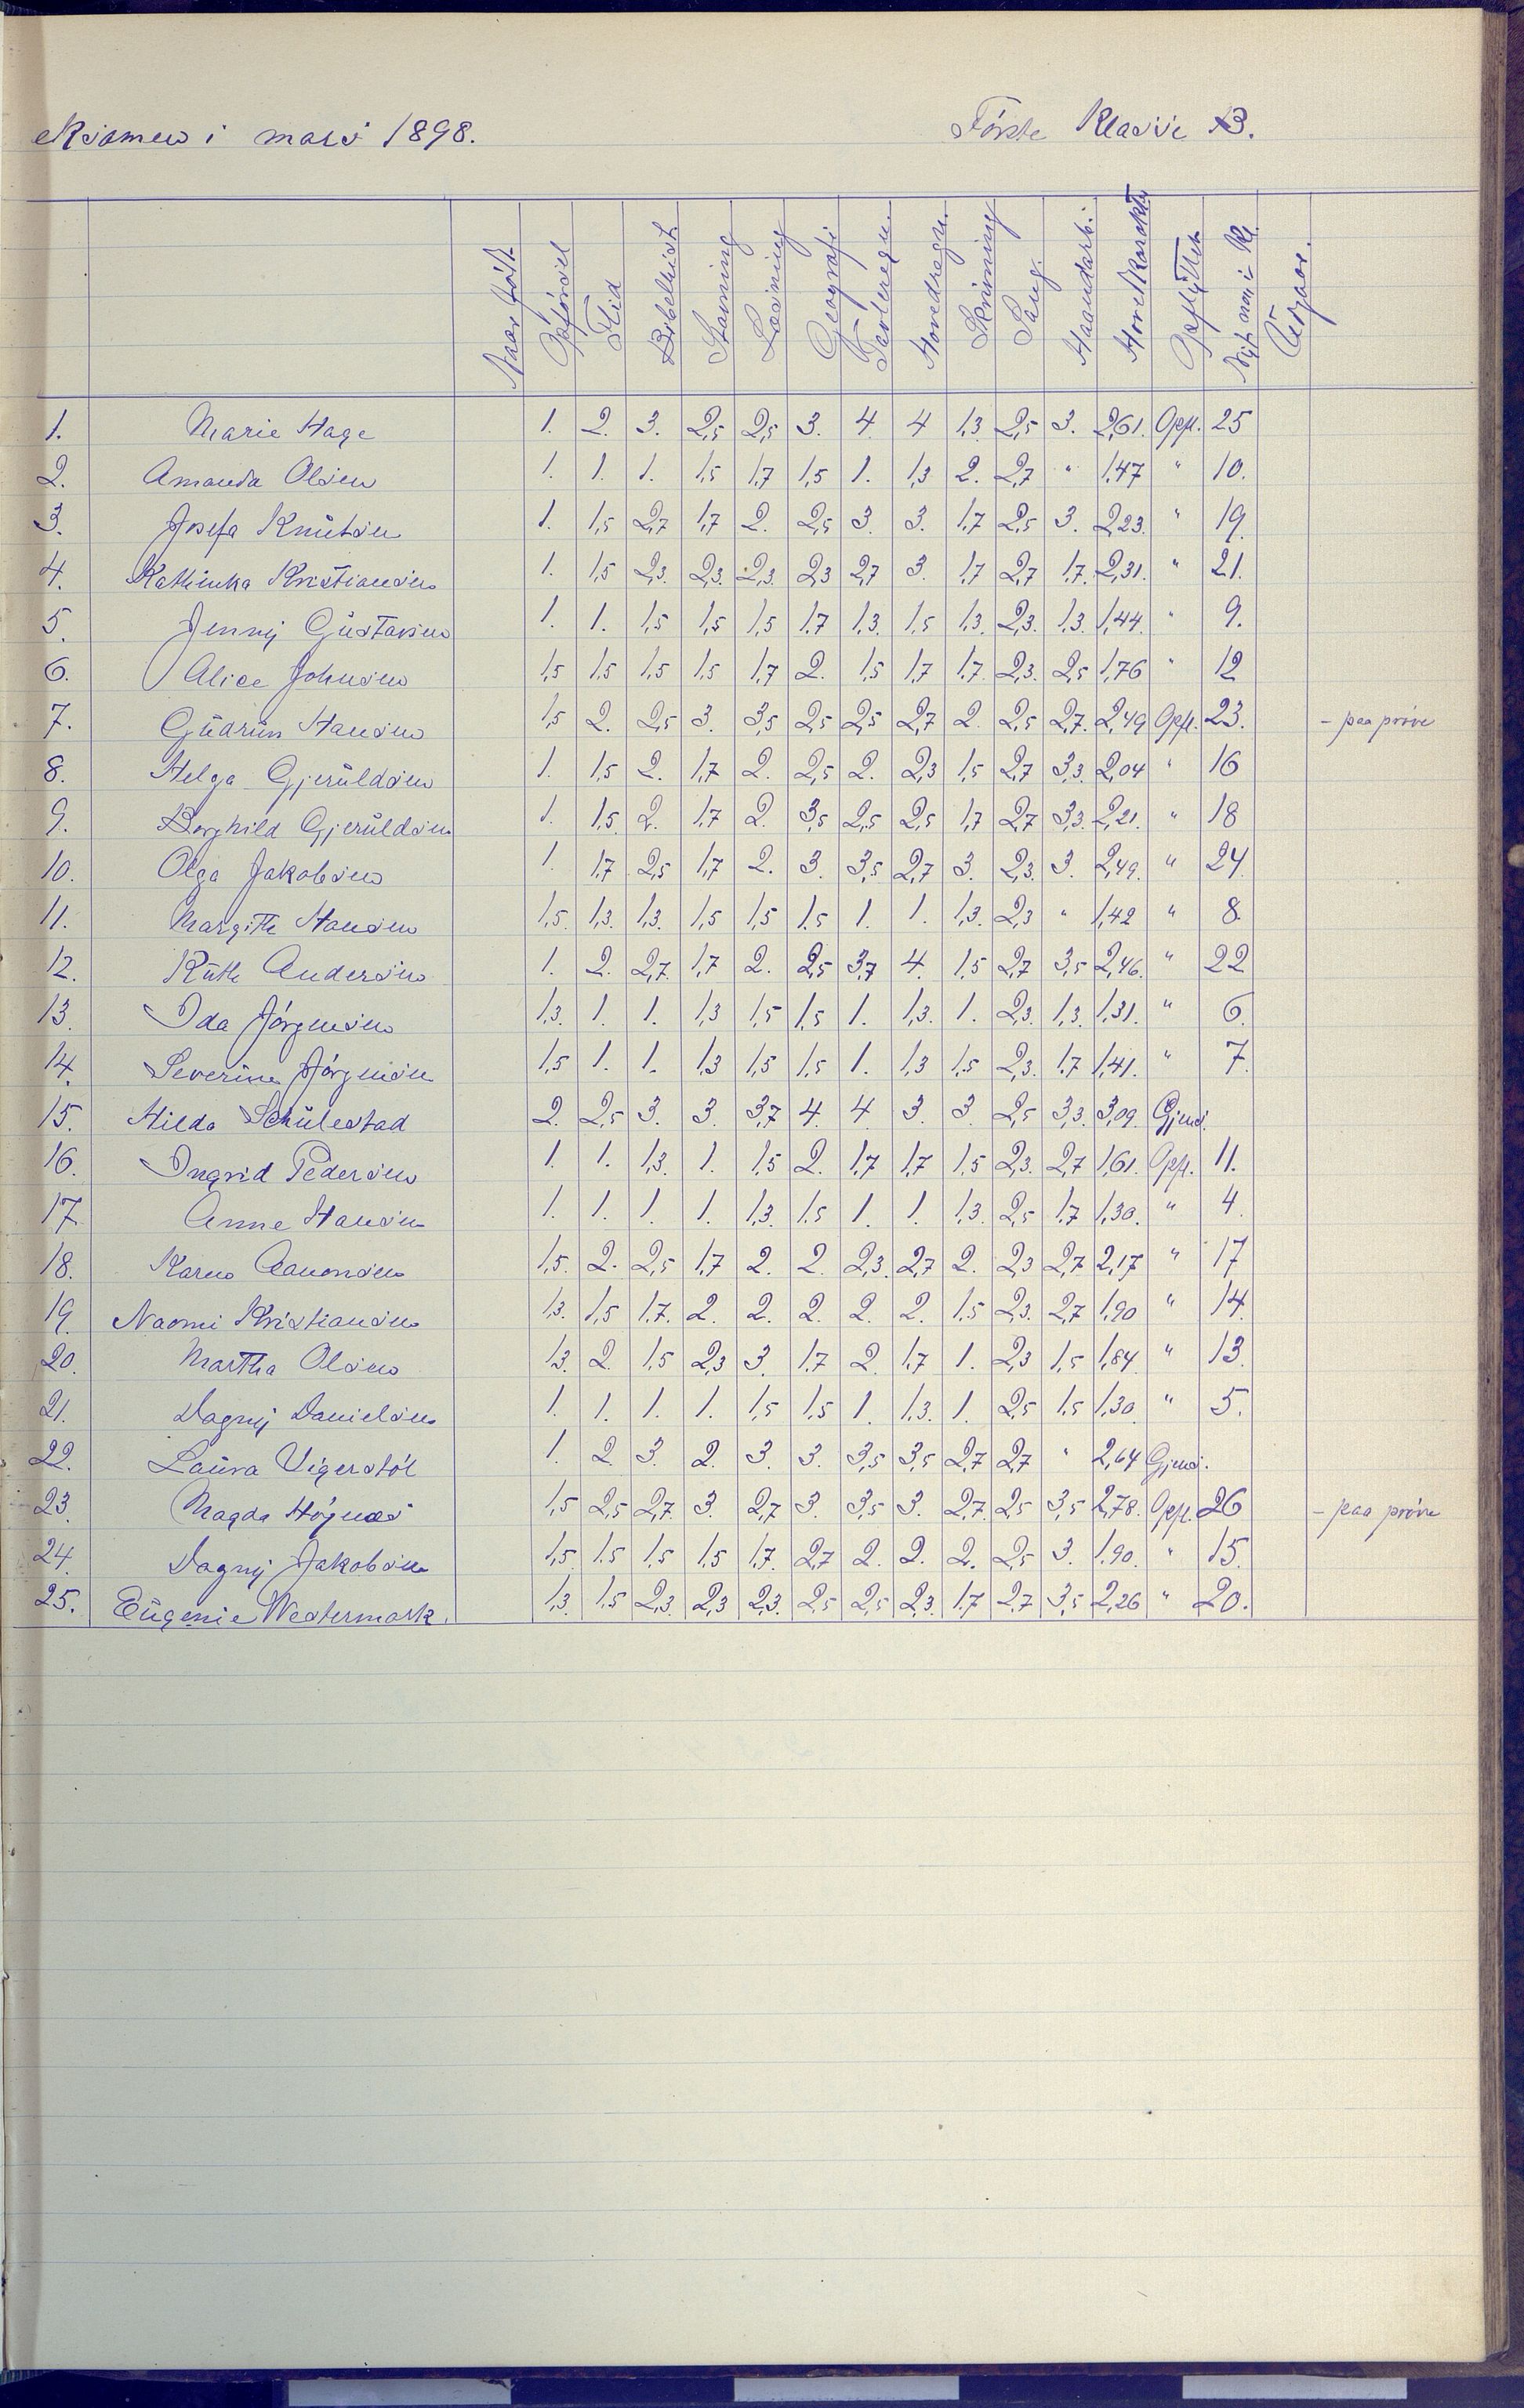 Eksamen i mars 1898. Første Klasse B.
Naar født Opførsel Flid Bibelhist. Stavning Læsning Geografi Tavleregn. Hovedregn. Skrivning Sang. Haandarb. Hovedkarakter Opflyttet Nyt nr. i Kl. Udgaar.
1. Marie Hage 1. 2. 3. 2,5 2,5 3. 4. 4 1,3 2,5 3. 2,61. Opfl. 25
2. Amanda Olsen 1. 1. 1. 1,5 1,7 1,5 1. 1,3 2. 2,7 " 1,47 " 10.
3. Josefa Knutsen 1. 1,5 2,7 1,7 2. 2,5 3. 3. 1,7 2,5 3. 2,23. " 19.
4. Kathinka Kristiansen 1. 1,5 2,3. 2,3. 2,3. 2,3 2,7 3. 1,7 2,7 1,7. 2,31. " 21.
5. Jenny Gustavsen 1. 1. 1,5 1,5 1,5 1,7 1,3. 1,5 1,3. 2,3. 1,3. 1,44. " 9.
6. Alice Johnsen 1,5 1,5 1,5 1,5 1,7 2. 1,5 1,7 1,7. 2,3. 2,5 1,76 " 12
7. Gudrun Hansen 1,5 2. 2,5 3. 3,5 2,5 2,5 2,7 2. 2,5 2,7. 2,49 Opfl. 23. - paa prøve
8. Helga Gjeruldsen 1. 1,5 2. 1,7 2. 2,5 2. 2,3 1,5 2,7 3,3. 2,04 " 16
9. Borghild Gjeruldsen 1. 1,5 2. 1,7 2. 3,5 2,5 2,5 1,7 2,7 3,3. 2,21. " 18
10. Olga Jakobsen 1. 1,7 2,5 1,7 2. 3. 3,5 2,7 3. 2,3. 3. 2,49. " 24
11. Margithe Hansen 1,5. 1,3. 1,3. 1,5 1,5 1,5 1. 1. 1,3. 2,3 " 1,42 " 8.
12. Ruth Andersen 1. 2. 2,7. 1,7 2. 2,5 3,7 4. 1,5 2,7 3,5 2,46. " 22
13. Ida Jørgensen 1,3. 1. 1. 1,3 1,5 1,5 1. 1,3. 1. 2,3. 1,3. 1,31. " 6.
14. Severine Jørgensen 1,5 1. 1. 1,3 1,5 1,5 1. 1,3 1,5 2,3. 1,7 1,41. " 7.
15. Hilda Schulestad 2. 2,5 3. 3. 3,7 4. 4 3 3. 2,5 3,3. 3,09. Gjens.
16. Ingrid Pedersen 1. 1. 1,3. 1. 1,5 2. 1,7 1,7 1,5 2,3. 2,7 1,61. Opfl. 11.
17. Anne Hansen 1. 1. 1. 1. 1,3. 1,5 1. 1. 1,3. 2,5 1,7 1,30. " 4.
18. Karen Aanonsen 1,5. 2. 2,5 1,7 2. 2. 2,3. 2,7 2. 2,3 2,7 2,17 " 17
19. Naomi Kristiansen 1,3. 1,5 1,7. 2. 2. 2. 2. 2. 1,5 2,3. 2,7 1,90 " 14.
20. Martha Olsen 1,3. 2. 1,5 2,3 3. 1,7 2. 1,7 1. 2,3 1,5 1,84 " 13.
21. Dagny Danielsen 1. 1. 1. 1. 1,5 1,5 1 1,3. 1. 2,5 1,5 1,30 " 5.
22. Laura Vigerstøl 1. 2. 3. 2. 3. 3. 3,5 3,5 2,7 2,7 " 2,64 Gjens.
23. Magda Høgnæs 1,5 2,5 2,7. 3. 2,7 3. 3,5 3. 2,7. 2,5 3,5 2,78. Opfl. 26 - paa prøve
24. Dagny Jakobsen 1,5. 1,5 1,5 1,5 1,7. 2,7 2. 2. 2. 2,5 3. 1,90. " 15.
25. Eugenie Westermark. 1,3. 1,5 2,3. 2,3 2,3. 2,5 2,5 2,3. 1,7 2,7 3,5 2,26 " 20.